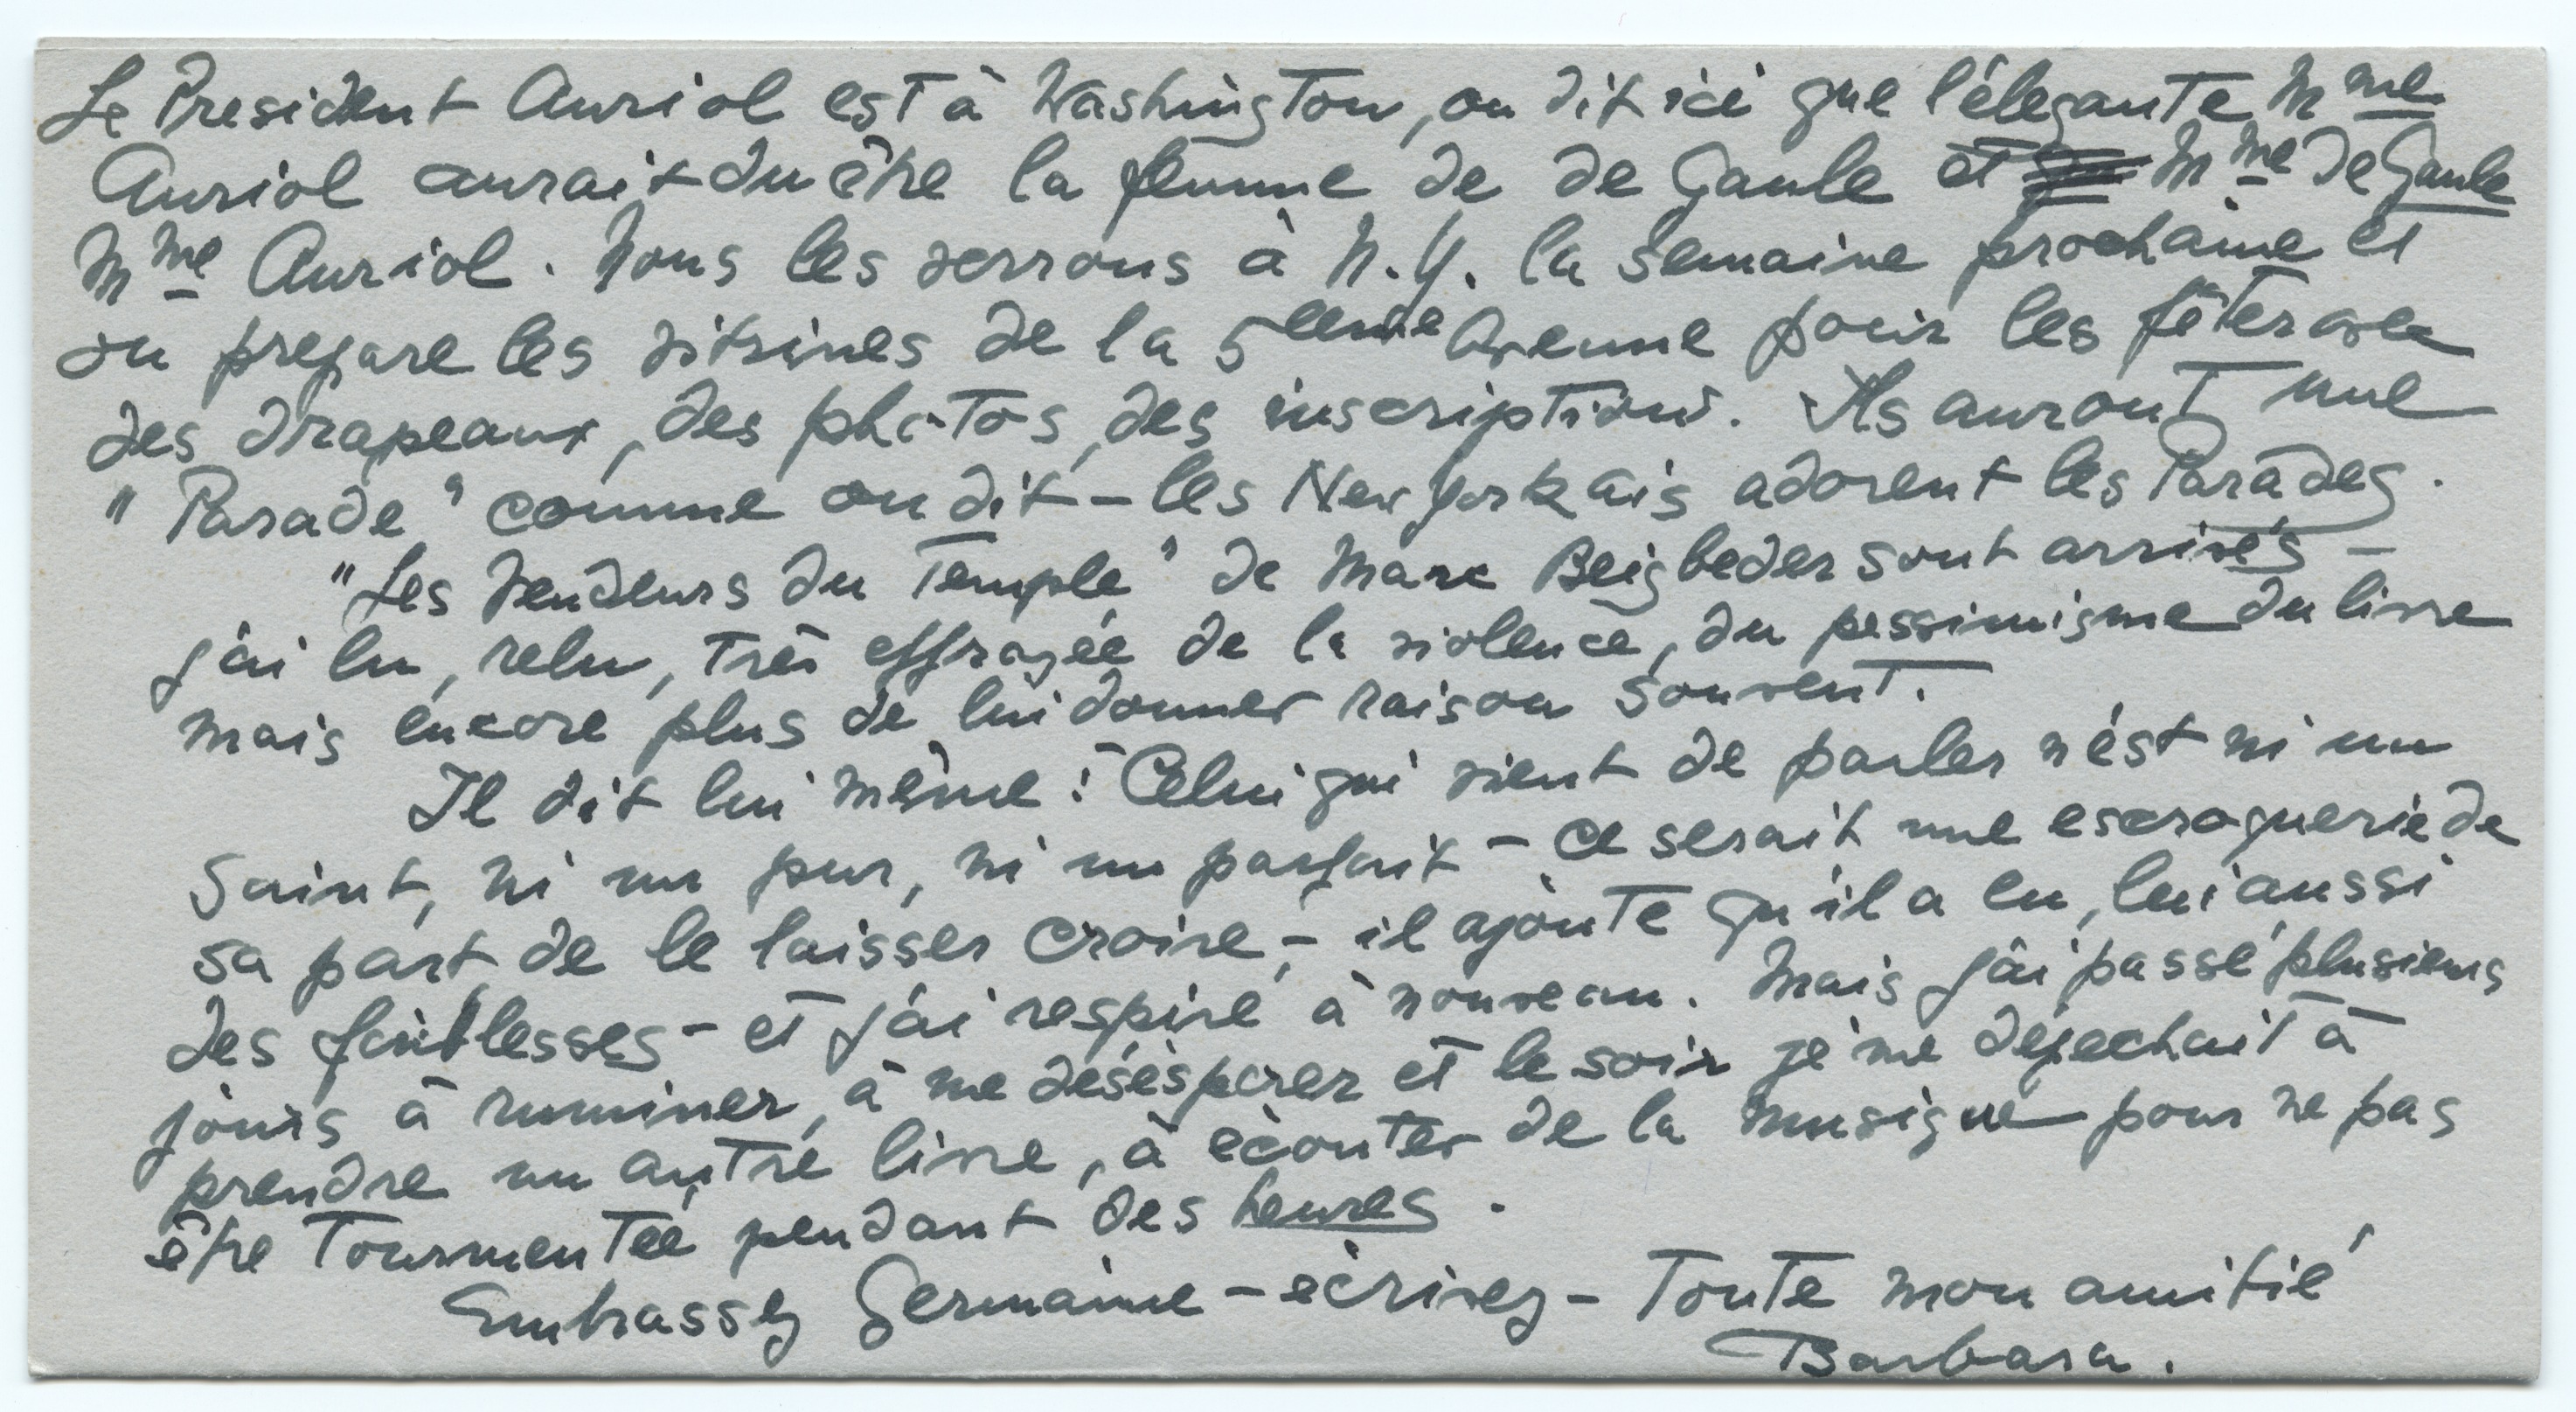 Le President Auriol est à Washington, on dit ici que l'élegante Mme
Auriol aurait du être la femme de de Gaule et Mme de Gaule
Mme Auriol. Nous les verrons à N.Y. la semaine prochaine et
on prepare les vitrines de la 5eeme Avenue pour les fêter avec
des drapeaux, des photos, des inscriptions. Ils auront une
"Parade" comme on dit – les New Yorkais adorent les Parades.
"Les Vendeurs du Temple" de Marc Beigbeder sont arrivés –
j'ai lu, relu, très effrayée de la violence, du pessimisme du livre
mais encore plus de lui donner raison souvent.
Il dit lui même : "Celui qui vient de parler n'est ni un
Saint, ni un pur, ni un parfait – ce serait une escroquerie de
sa part de le laisser croire, – il ajoute qu'il a eu, lui aussi
des faiblesses – et j'ai respiré à nouveau. Mais j'ai passé plusieurs
jours à ruminer, à me désèsperer et le soir je me dépechait à
prendre un autre livre, à ecouter de la musique pour ne pas
être tourmentée pendant des heures.
Embrassez Germaine – ècrivez – Toute mon amitié
Barbara.